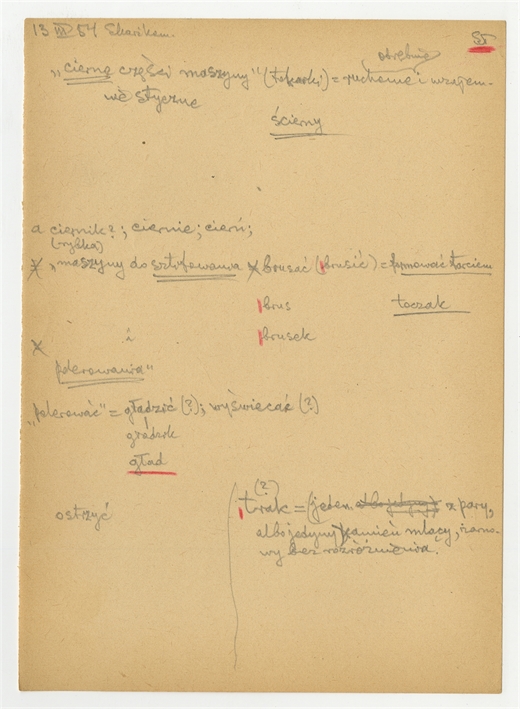 13 III 54 Skarikem.
55
odrębnie
„cierne części maszyny" (tokarki) = ruchome i wzajem-
nie styczne
ścierny
a ciernik?; ciernie; cierń;
(rybka)
„maszyny do szlifowania brusać (brusić) = formować tarciem
brus toczak
i brusek
polerowania"
„polerować" = gładzić (?); wyświecać (?)
gładzik
gład
(?)
ostrzyć trak = (jeden albo jedyny) z pary,
albo jedyny kamień mlący, żarno-
wy bez rozróżnienia.